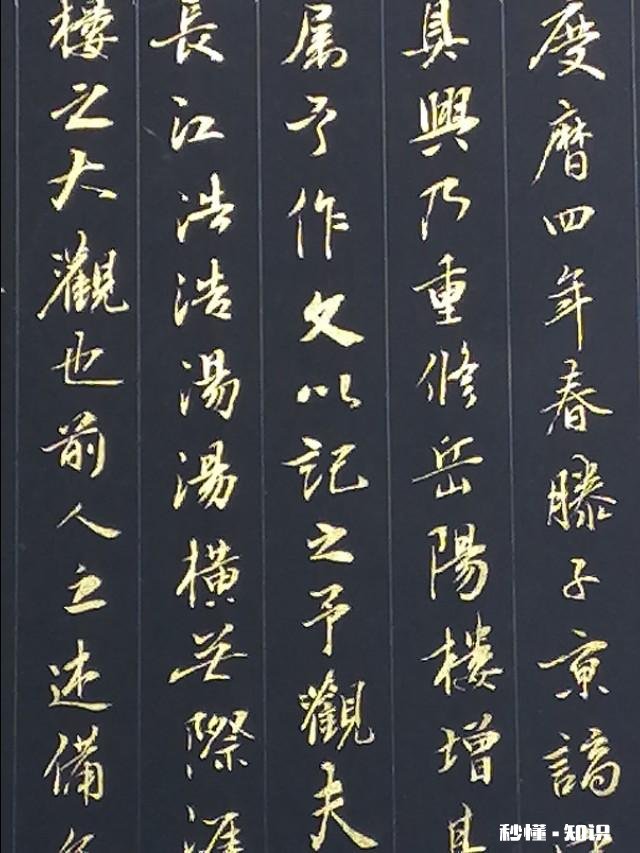 度曆四年春滕子京謫
具興乃重修岳陽樓增其
属予作文以記之予觀夫
長江浩浩湯湯橫無際涯
樓之大觀也前人之述備矣
秒懂·知识